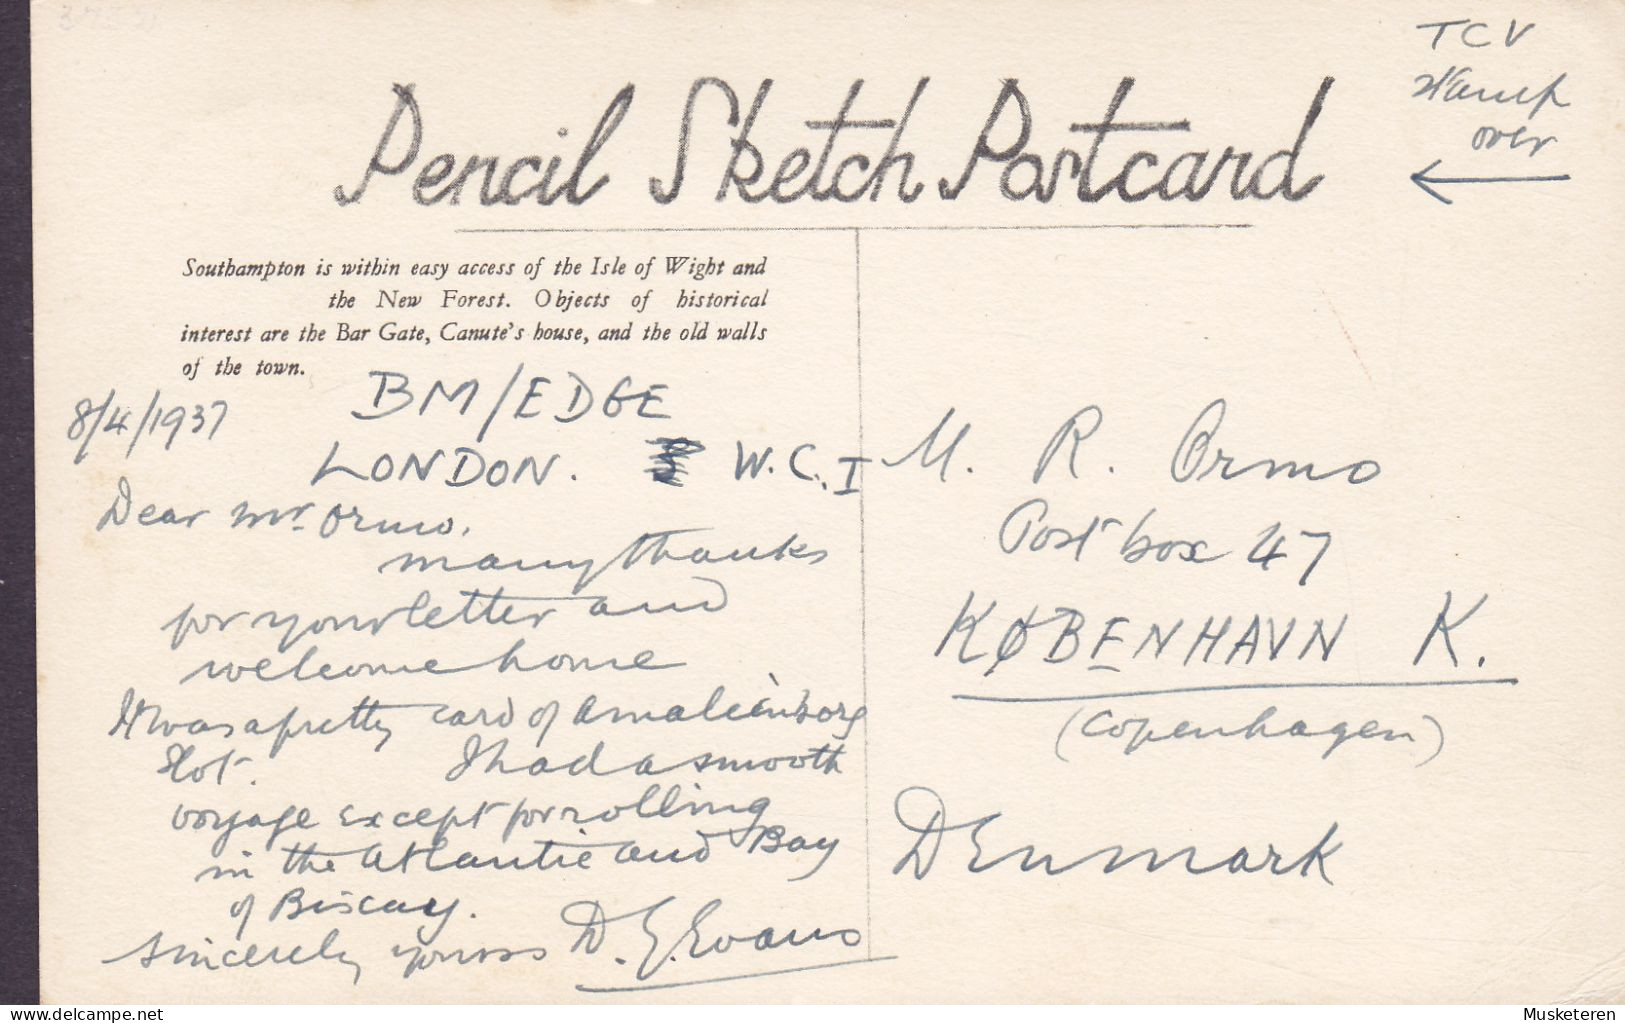 TCV
stamp
over
Pencil Sketch Postcard
Southampton is within easy access of the Isle of Wight and
the New Forest. Objects of historical
interest are the Bar Gate, Canute's house, and the old walls
of the town.
8/4/1937
BM/EDGE
LONDON. W.C.I
Dear Mr Ormo.
many thanks
for your letter and
welcome home
It was a pretty card of Amalienborg
Slot. I had a smooth
voyage except for rolling
in the Atlantic and Bay
of Biscay.
Sincerely yours D. G. Evans
M. R. Ormo
Post box 47
KØBENHAVN K.
(Copenhagen)
Denmark
delcampe.net
Musketeren